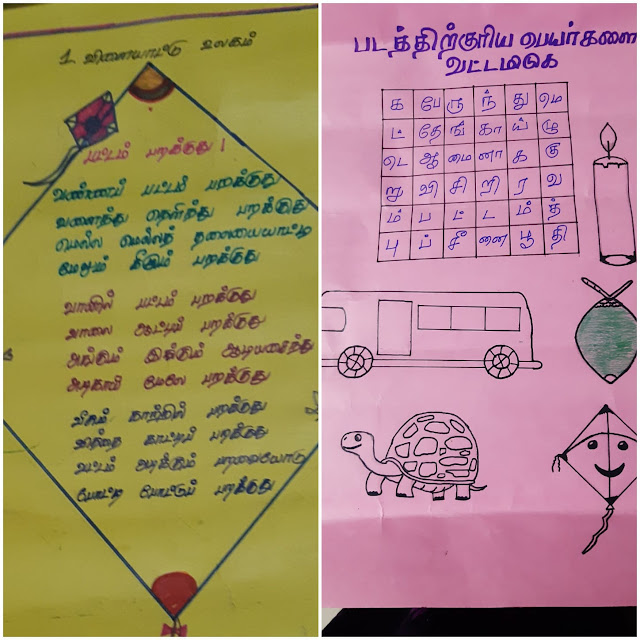 1. விளையாட்டு உலகம்
பட்டம் பறக்குது!
வண்ணப் பட்டம் பறக்குது
வளைந்து நெளிந்து பறக்குது
மெல்ல மெல்லத் தலையையாட்டி
மேலும் கீழும் பறக்குது
வானில் பட்டம் பறக்குது
வாலை ஆட்டிப் பறக்குது
அங்கும் இங்கும் ஆடியசைந்து
அழகாய் மேலே பறக்குது
வீசும் காற்றில் பறக்குது
வித்தை காட்டிப் பறக்குது
வட்டம் அடிக்கும் பறவையோடு
போட்டி போட்டுப் பறக்குது
படத்திற்குரிய பெயர்களை
வட்டமிடுக
க பே ரு ந் து மெ
ட் தே ங் கா ய் ழு
டெ ஆ மை னா க கு
று வி சி றி ர வ
ம் ப ட் ட ம் த்
பு ப் சீ னை பூ தி